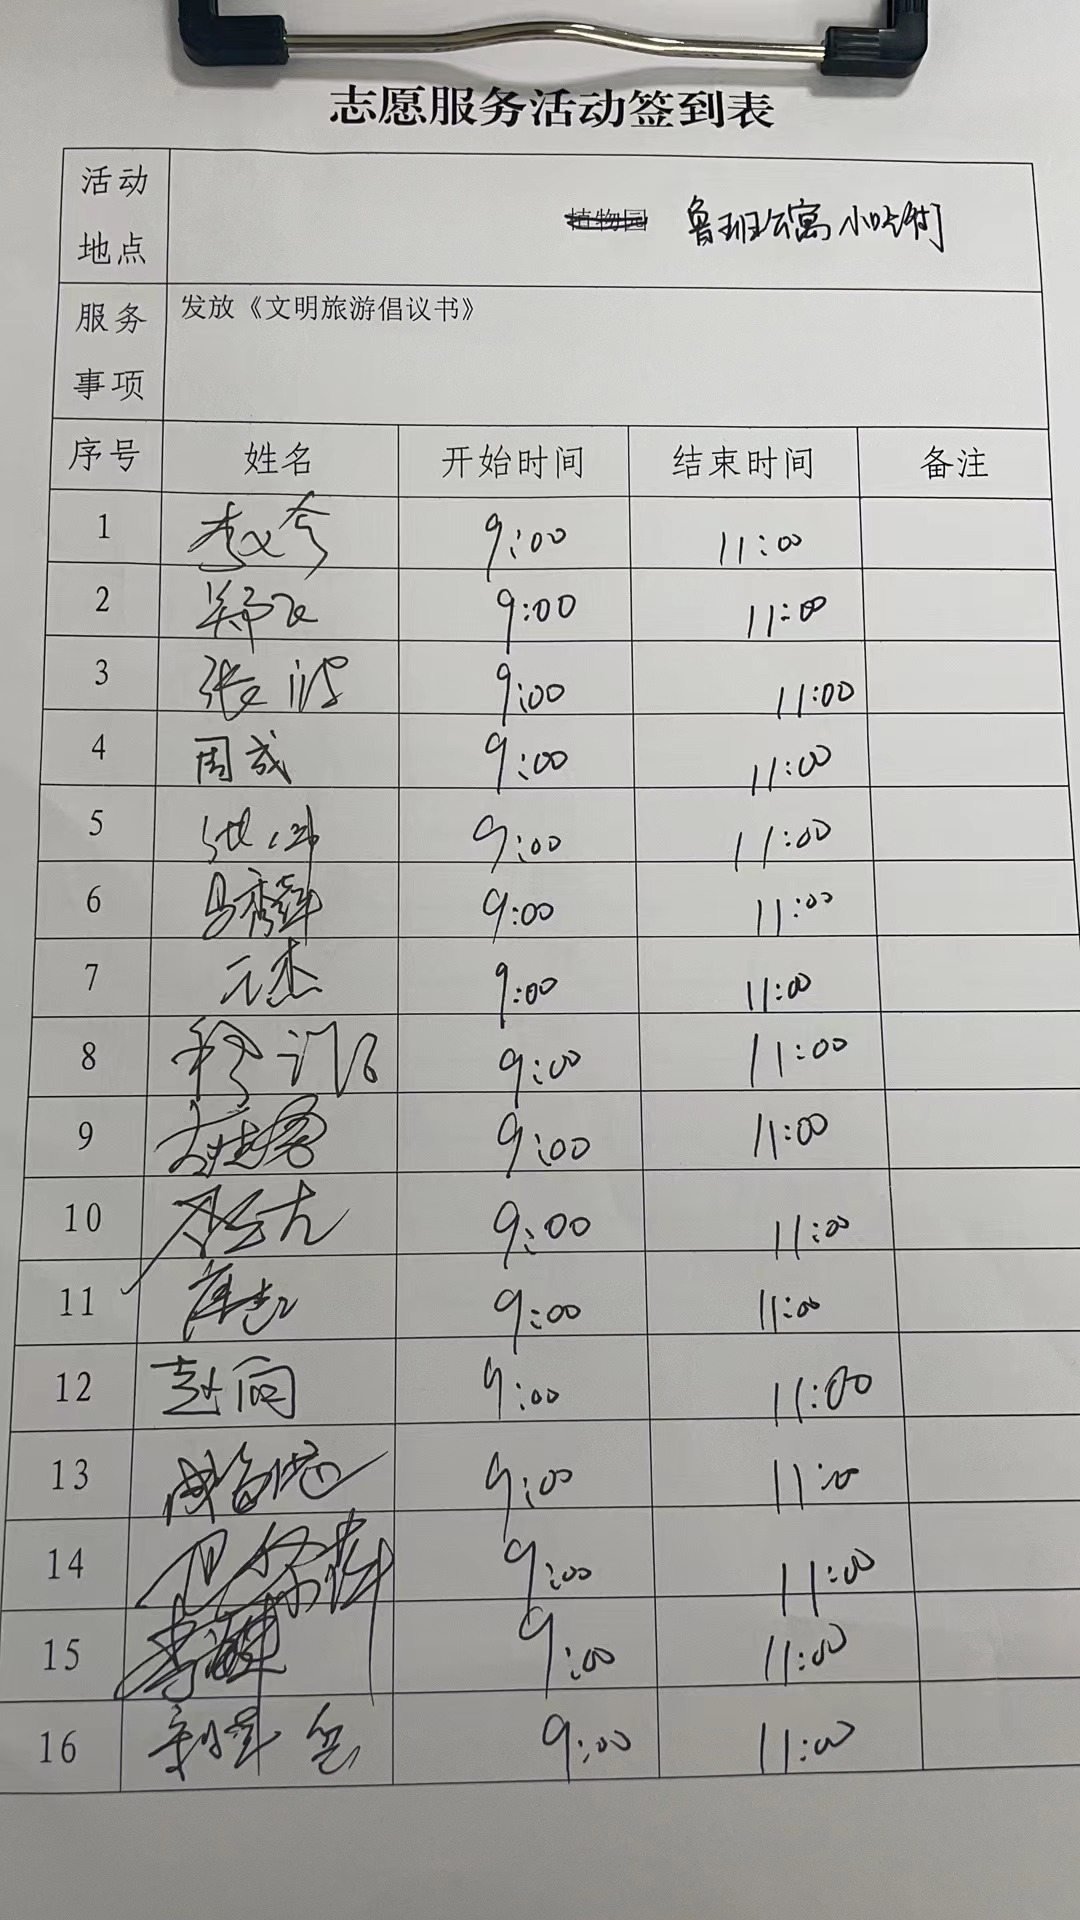 志愿服务活动签到表
活动地点 植物园 鲁班公寓小吃街
服务事项 发放《文明旅游倡议书》
序号 姓名 开始时间 结束时间 备注
1 9:00 11:00
2 郑飞 9:00 11:00
3 张 9:00 11:00
4 周成 9:00 11:00
5 9:00 11:00
6 马秀 9:00 11:00
7 元杰 9:00 11:00
8 9:00 11:00
9 9:00 11:00
10 9:00 11:00
11 9:00 11:00
12 赵向 9:00 11:00
13 9:00 11:00
14 9:00 11:00
15 李 9:00 11:00
16 9:00 11:00